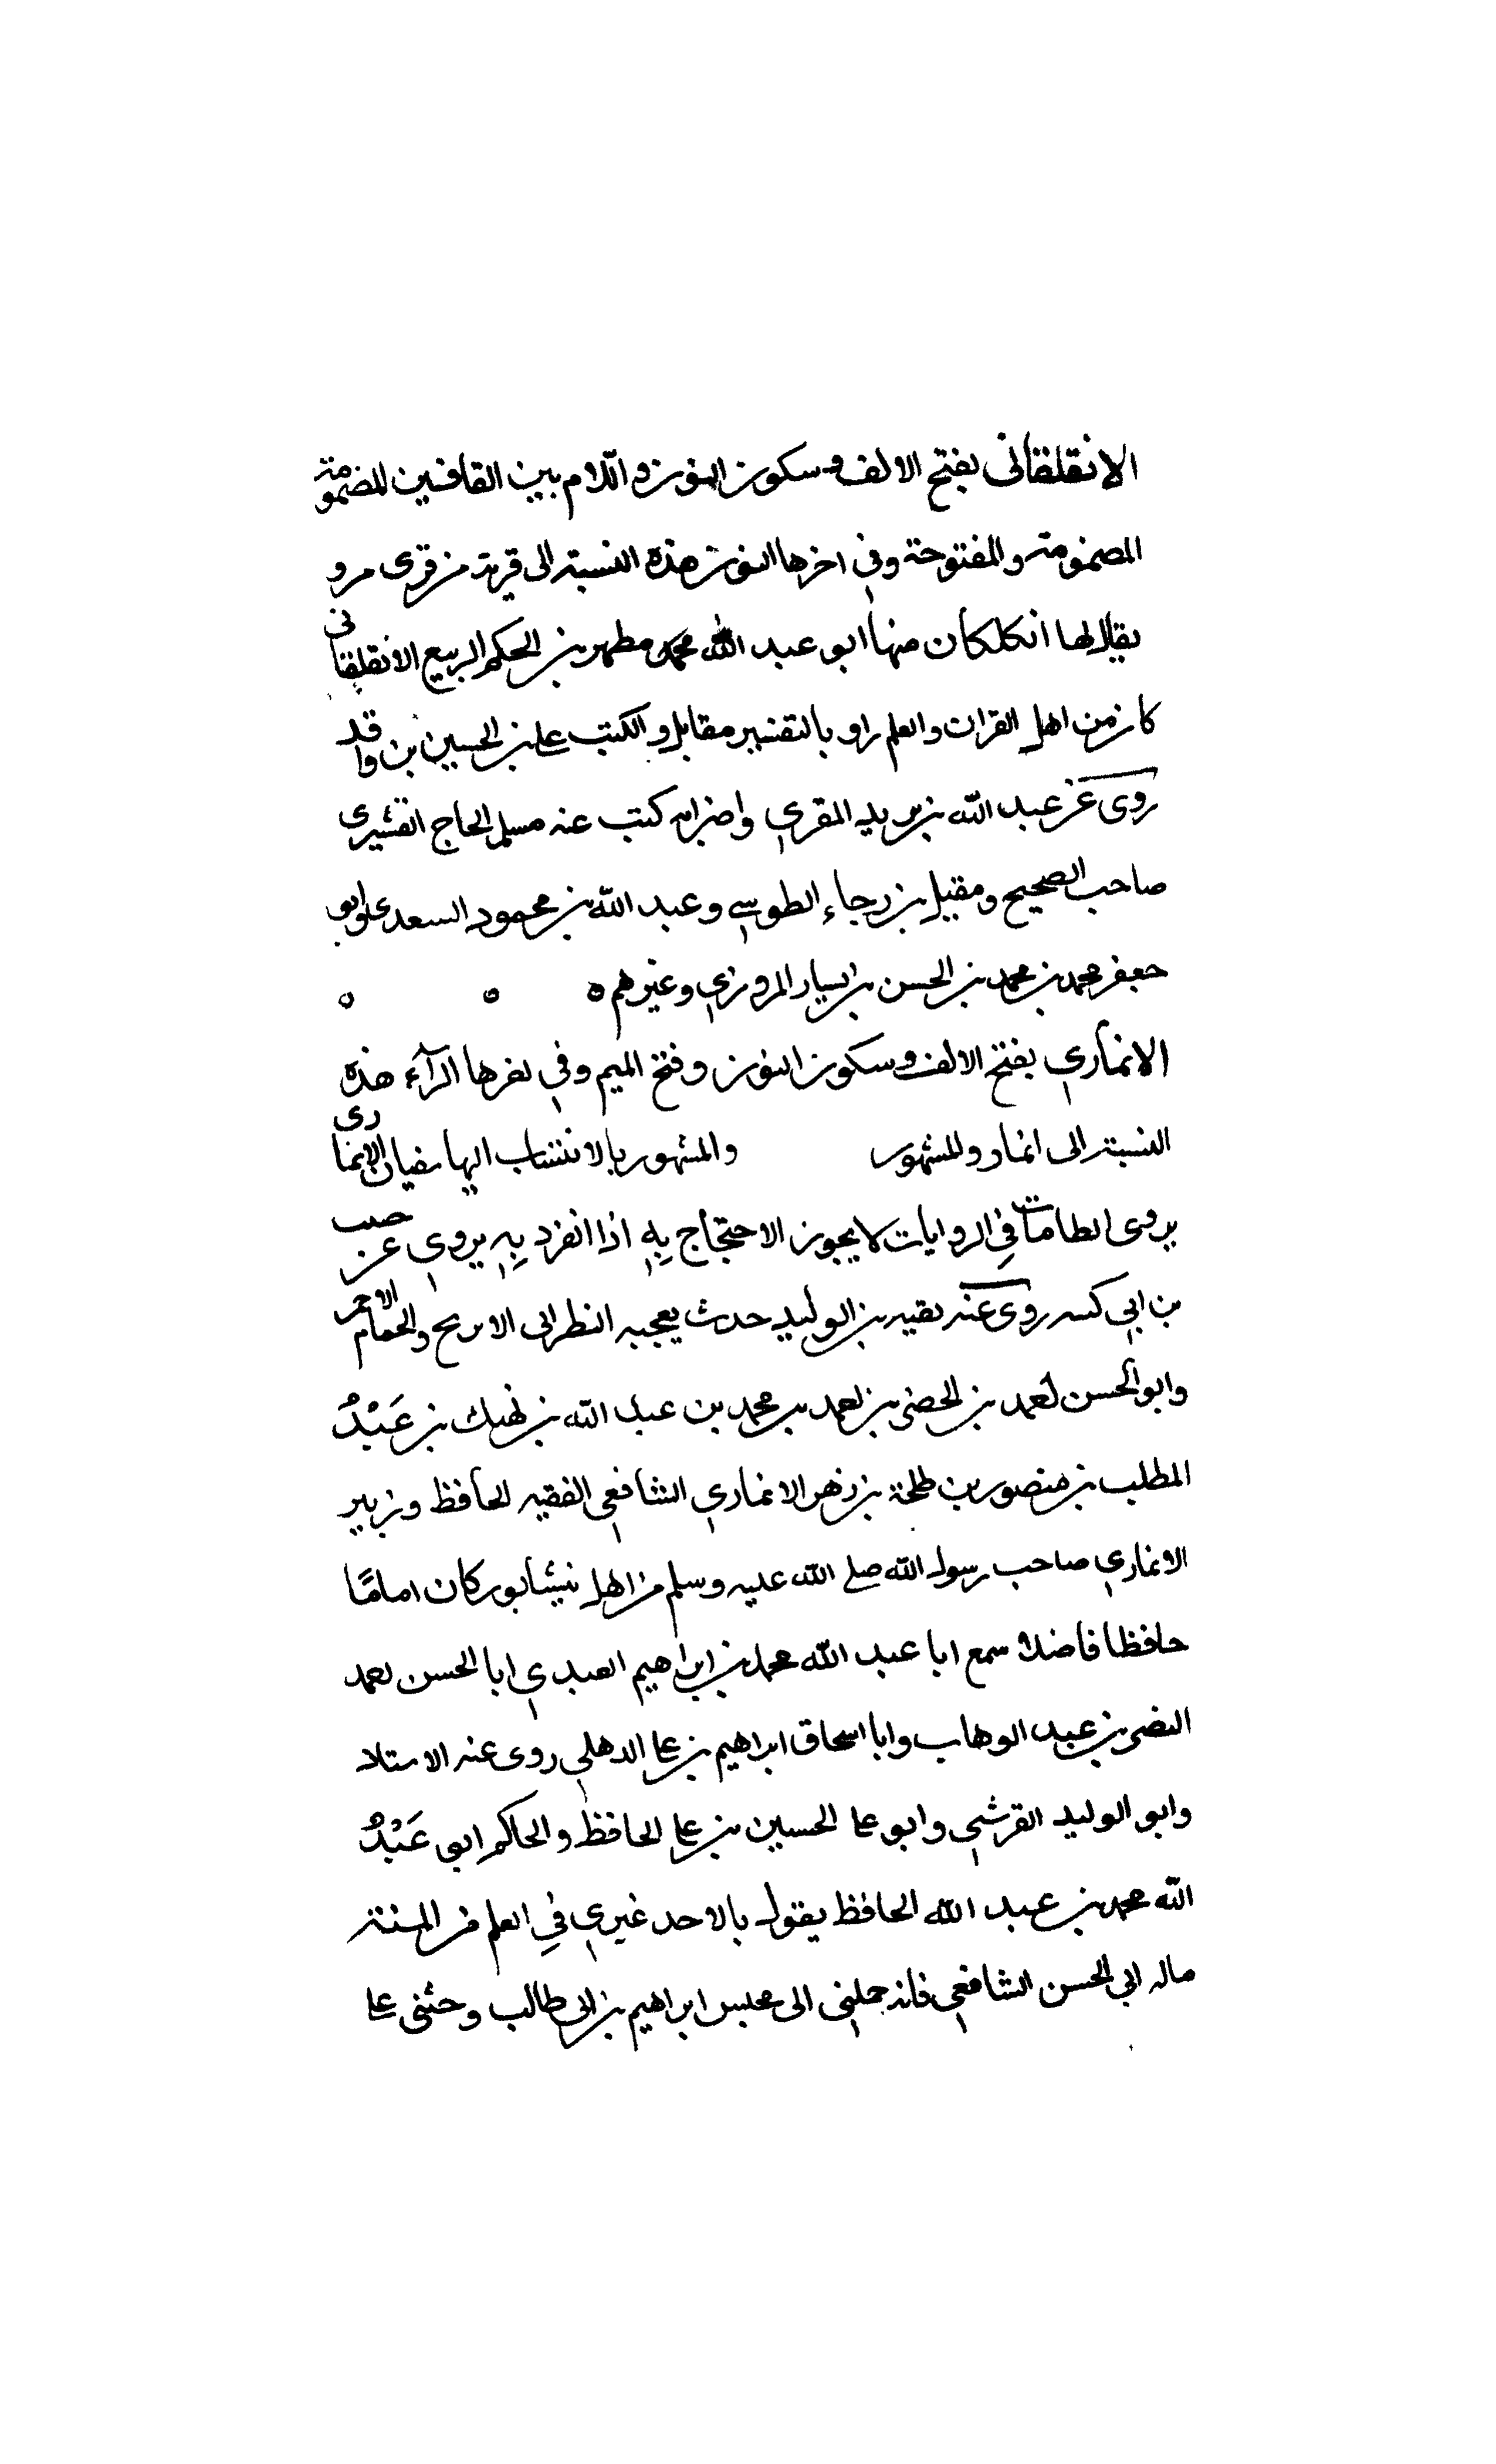 الانقلقاني بفتح الالف وسكون النون واللام بين القافين المضمومة
المضمومة والمفتوحة وفي اخرها النون هذه النسبة الى قرية من قرى مرو
يقال لها انكلكان منها ابو عبد الله محمد مطهر بن الحكم الربيع الانقلقاني
كان من اهل القران والعلم راو بالتفسير مقابل والكتب علي بن الحسين بن واقد
روى عن عبد الله بن يزيد المقري واضرابه كتب عنه مسلم الحاج القشيرى
صاحب الصحيح ومقبل بن رجاء الطوسي وعبد الله بن محمود السعدى وابو
جعفر محمد بن محمد بن الحسن بن يسار المروزي وغيرهم ه ه ه
الانماري بفتح الالف وسكون النون وفتح الميم وفي اخرها الرآء هذه
النسبة الى انمار والمشهور والمشهور بالانتساب اليها سفيان الانمارى
يروى الطامات في الروايات لا يجوز الاحتجاج به اذا انفرد به يروي عن حبيب
بن ابي كبسه روى عنه بقيه بن الوليد حدث يعجبه النظر الى الاترج والحمام الاحمر
وابو الحسن احمد بن الخضر بن احمد بن محمد بن عبد الله بن نهيك بن عَبْدُ
المطلب بن منصور بن طلحة بن زهر الانماري الشافعي الفقيه الحافظ وزبير
الانماري صاحب رسول الله صلى الله عليه وسلم من اهل نيشابور كان امامًا
حافظا فاضلا سمع ابا عبد الله محمد بن ابراهيم العبدي ابا الحسن احمد
النضر بن عبد الوهاب وابا اسحاق ابراهيم بن على الذهلي روى عنه الاستاد
وابو الوليد القرشي وابو على الحسين بن على الحافظ والحاكم ابو عَبْدُ
الله محمد بن عبد الله الحافظ يقول بالاحد غيري في العلم من المنة
ماله ابي الحسن الشافعي فانه حملني الى مجلس ابراهيم بن ابي طالب وحثني على